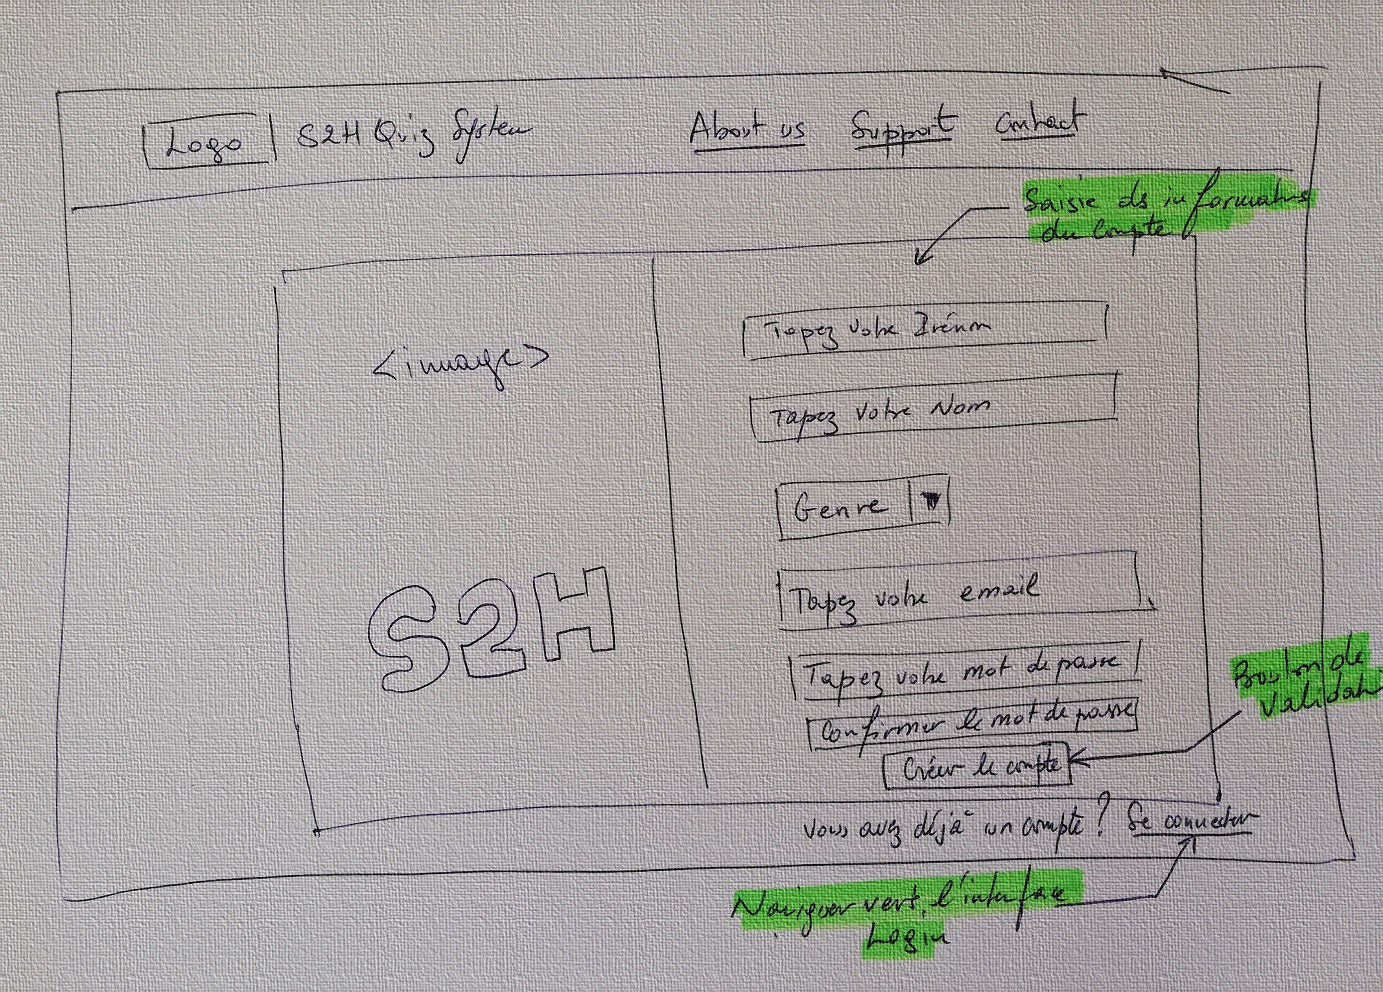 Logo S2H Quiz System About us Support Contact
Saisie ds informatns
du compte
<image>
Tapez votre Prénom
Tapez votre Nom
Genre
Tapez votre email
S2H
Tapez votre mot de passe
Confirmer le mot de passe
Créer le compte
Bouton de
Validat
Vous avez déjà un compte ? Se connecter
Naviguer vert l'interface
Login